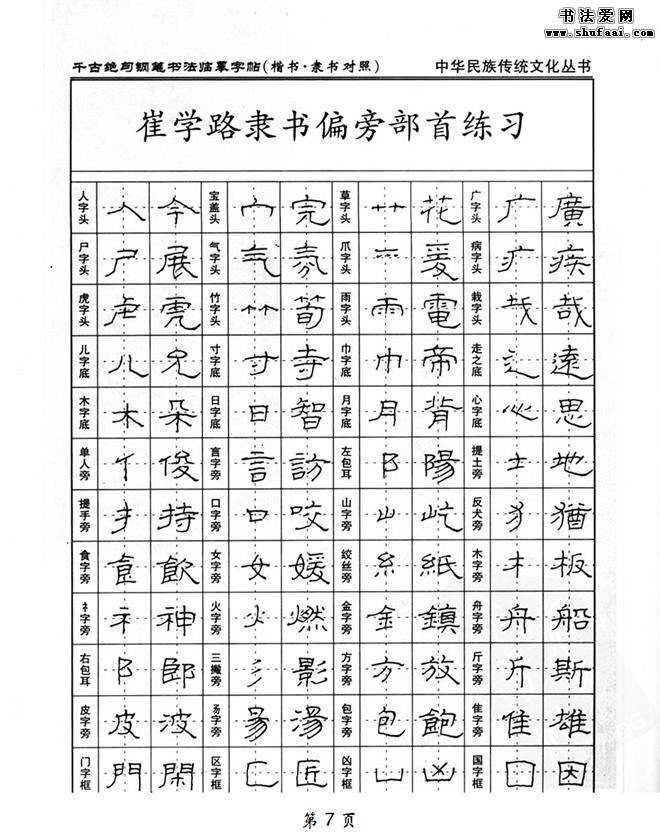 书法爱网
www.shufaai.com
千古绝句钢笔书法临摹字帖(楷书·隶书对照) 中华民族传统文化丛书
崔学路隶书偏旁部首练习
人字头 人 今 宝盖头 宀 完 草字头 艹 花 广字头 广 廣
尸字头 尸 展 气字头 气 氛 爪字头 爫 爰 病字头 疒 疾
虎字头 虍 虎 竹字头 𥫗 筍 雨字头 雨 電 栽字头 𢦏 哉
儿字底 儿 兄 寸字底 寸 寺 巾字底 巾 帝 走之底 辶 遠
木字底 木 朵 日字底 日 智 月字底 月 背 心字底 心 思
单人旁 亻 俊 言字旁 言 訪 左包耳 阝 陽 提土旁 土 地
提手旁 扌 持 口字旁 口 咬 山字旁 山 屹 反犬旁 犭 猶
食字旁 飠 飲 女字旁 女 媛 绞丝旁 糹 紙 木字旁 木 板
礻字旁 礻 神 火字旁 火 燃 金字旁 金 鎮 舟字旁 舟 船
右包耳 阝 郎 三撇旁 彡 影 方字旁 方 放 斤字旁 斤 斯
皮字旁 皮 波 昜字旁 昜 湯 包字旁 包 飽 隹字旁 隹 雄
门字框 門 閑 区字框 匚 匠 凶字框 凵 凶 国字框 囗 因
第7页